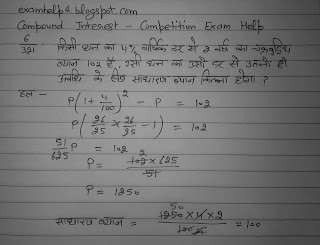 examhelp4.blogspot.com
Compound Interest - Competition Exam Help
6/321 किसी धन का 4% वार्षिक दर से 2 वर्ष का चक्रवृद्धि
ब्याज 102 है, उसी धन का उसी दर से उतने ही
अवधि के लिए साधारण ब्याज कितना होगा ?
हल - P(1 + 4/100)² - P = 102
P(26/25 × 26/25 - 1) = 102
51/625 P = 102 2
P = 102 × 625 / 51
P = 1250
साधारण ब्याज = 50 1250 × 4 × 2 / 100 25 = 100